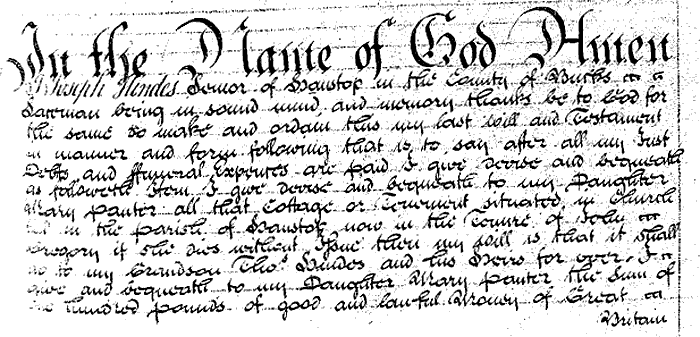 In the Name of God Amen
Joseph Hindes Senior of Hanslop in the County of Bucks
Laceman being in sound mind, and memory thanks be to God for
the same do make and ordain this my last will and Testament
in manner and form following that is to say after all my Just
Debts and Funeral Expences are paid I give devise and bequeath
as followeth Item I give devise and bequeath to my Daughter
Mary Panter all that Cottage or Tenement situated, in Church
in the parish of Hanslop now in the Tenure of John
Gregory if she dies without Issue then my will is that it shall
go to my Grandson Thos. Hindes and his Heirs for ever. I
give and bequeath to my Daughter Mary Panter the Sum of
hundred pounds of good and lawful Money of Great
Britain